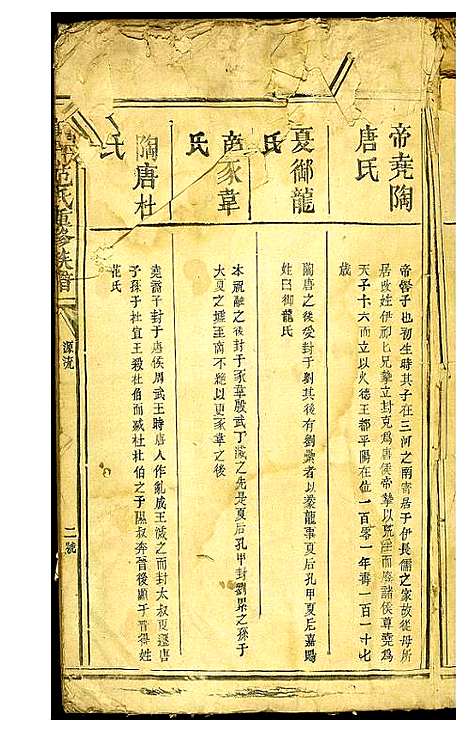 帝堯陶
唐氏
帝嚳子也初生時其子在三河之南寄居于伊長孺之家故從母所
居改姓伊祁氏兄摯立封克為唐侯帝摯以荒淫而廢諸侯尊堯為
天子十六而立以火德王都平陽在位一百零一年壽一百一十七
歲
夏御龍
氏
陶唐之後受封于劉其後有劉累者以豢龍事夏后孔甲夏后嘉賜
姓曰御龍氏
商豕韋
氏
本祝融之後封于豕韋殷武丁滅之先是夏后孔甲封劉累之孫于
大夏之墟至商不絕以更豕韋之後
陶唐杜
氏
堯裔子封于唐侯周武王時唐人作亂成王滅之而封太叔更遷唐
子孫于杜宣王殺杜伯而滅杜杜伯之子隰叔奔晉後顯于晉得姓
范氏
范氏重修族譜
源流
二號